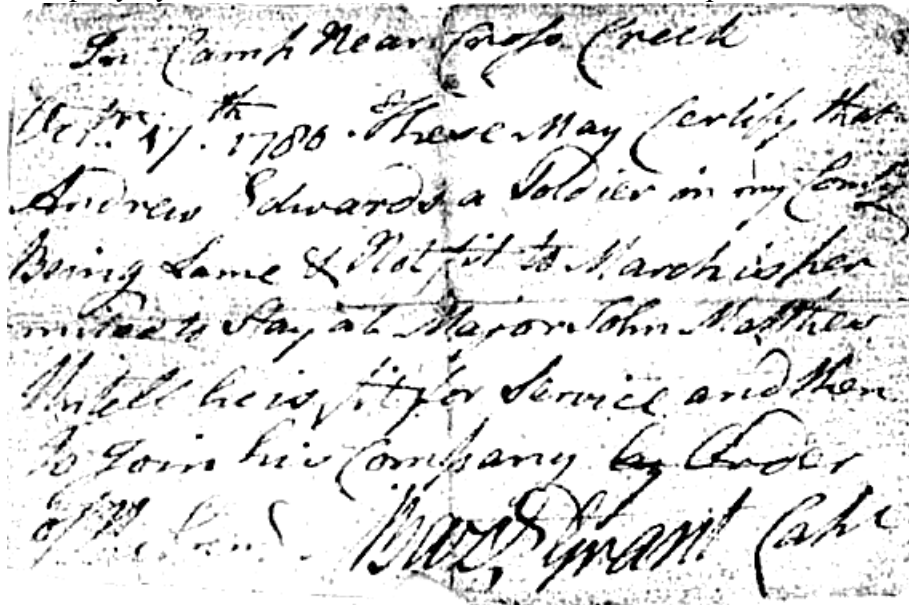 In Camp Near Cross Creek
17th. 1780. These May Certify that
Andrew Edwards a Soldier in my Compy
Being Lame & Not fit to March is per
mited to Stay at Major John Matthews
Untell he is fit for Service and then
to Join his Company by Order
of Grant Capt